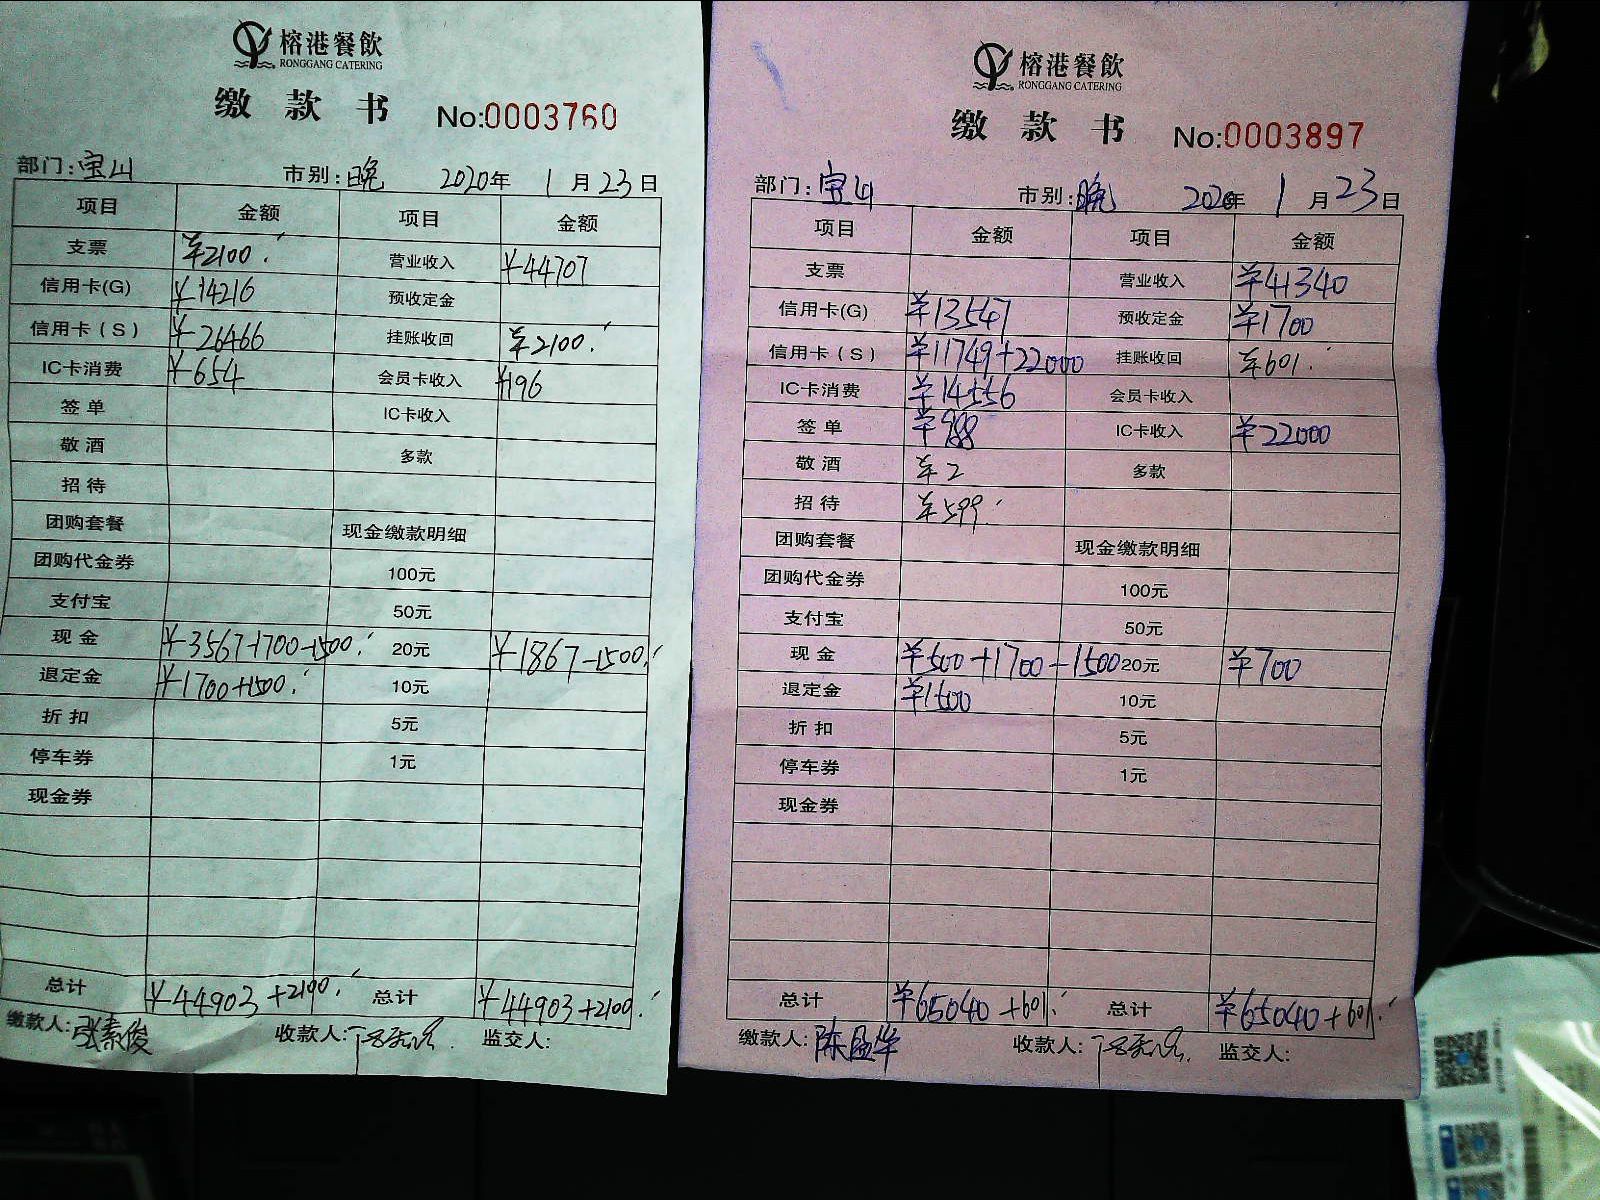 榕港餐飲
RONGGANG CATERING
缴款书 No:0003760
部门:宝山 市别:晚 2020年1月23日
项目 金额 项目 金额
支票 ¥2100. 营业收入 ¥44707
信用卡(G) ¥14216 预收定金
信用卡(S) ¥26466 挂账收回 ¥2100.
IC卡消费 ¥654 会员卡收入 ¥196
签单 IC卡收入
敬酒 多款
招待
团购套餐 现金缴款明细
团购代金券 100元
支付宝 50元
现金 ¥3567-1700-1500. 20元 ¥1867-1500.
退定金 ¥1700+1500. 10元
折扣 5元
停车券 1元
现金券
总计 ¥44903+2100. 总计 ¥44903+2100.
缴款人:张素俊 收款人: 监交人:
榕港餐飲
RONGGANG CATERING
缴款书 No:0003897
部门:宝山 市别:晚 2020年1月23日
项目 金额 项目 金额
支票 营业收入 ¥41340
信用卡(G) ¥13547 预收定金 ¥1700
信用卡(S) ¥11749+22000 挂账收回 ¥601.
IC卡消费 ¥14556 会员卡收入
签单 ¥988 IC卡收入 ¥22000
敬酒 ¥2 多款
招待 ¥599.
团购套餐 现金缴款明细
团购代金券 100元
支付宝 50元
现金 ¥500+1700-1500 20元 ¥700
退定金 ¥1500 10元
折扣 5元
停车券 1元
现金券
总计 ¥65040+601. 总计 ¥65040+601.
缴款人:陈孟华 收款人: 监交人: